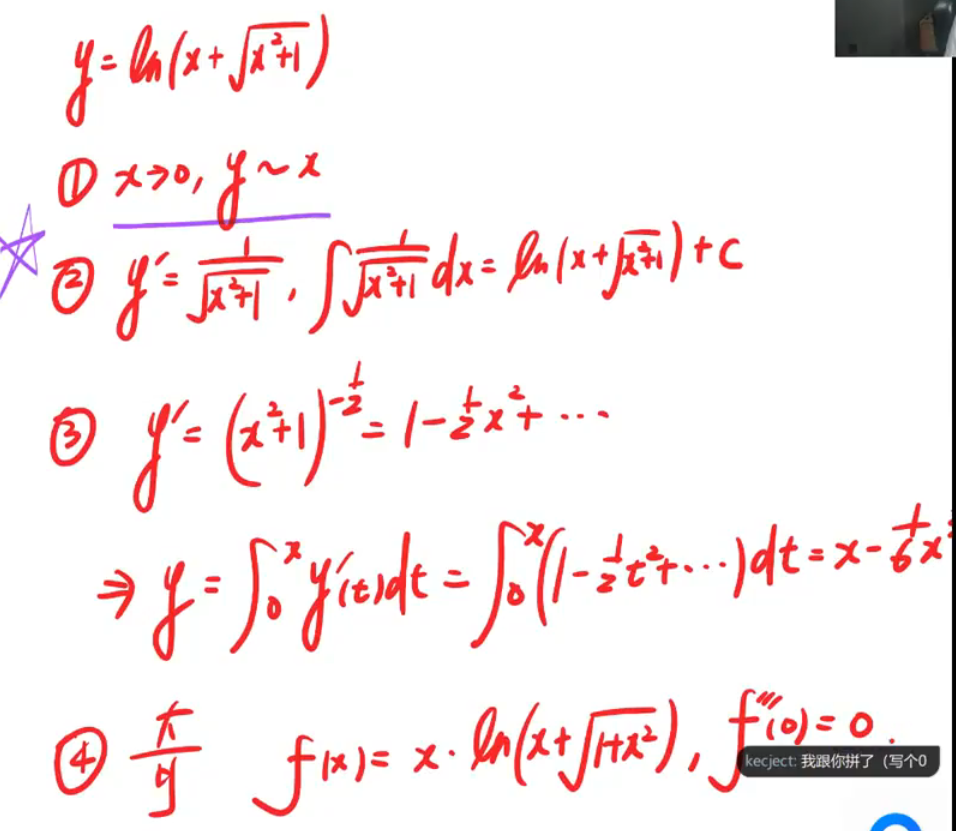 y = ln(x + √(x²+1))
① x→0, y ~ x
② y′ = 1/√(x²+1), ∫ 1/√(x²+1) dx = ln(x + √(x²+1)) + C
③ y′ = (x²+1)^(-1/2) = 1 - 1/2 x² + ⋯
⇒ y = ∫₀ˣ y′(t)dt = ∫₀ˣ (1 - 1/2 t² + ⋯)dt = x - 1/6 x³
④ f(x) = x · ln(x + √(1+x²)), f‴(0) = 0.
kecject: 我跟你拼了（写个0